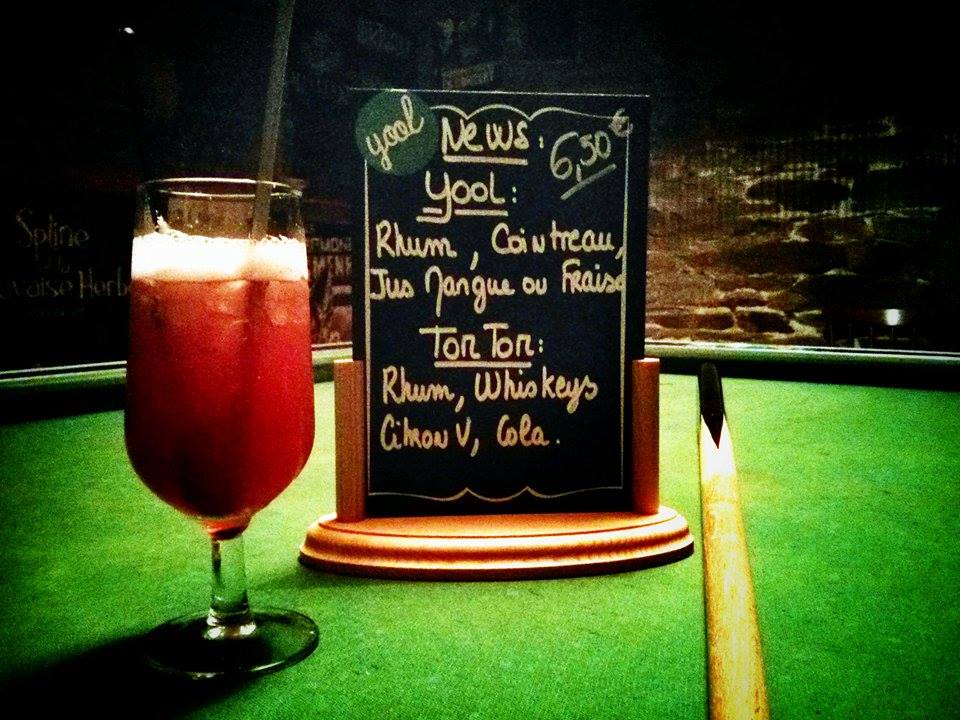 yool
News:
6,50€
Yool:
Rhum, Cointreau,
Jus Mangue ou Fraise
Tor Tor:
Rhum, Whiskeys
Citron V, Cola.
Spline